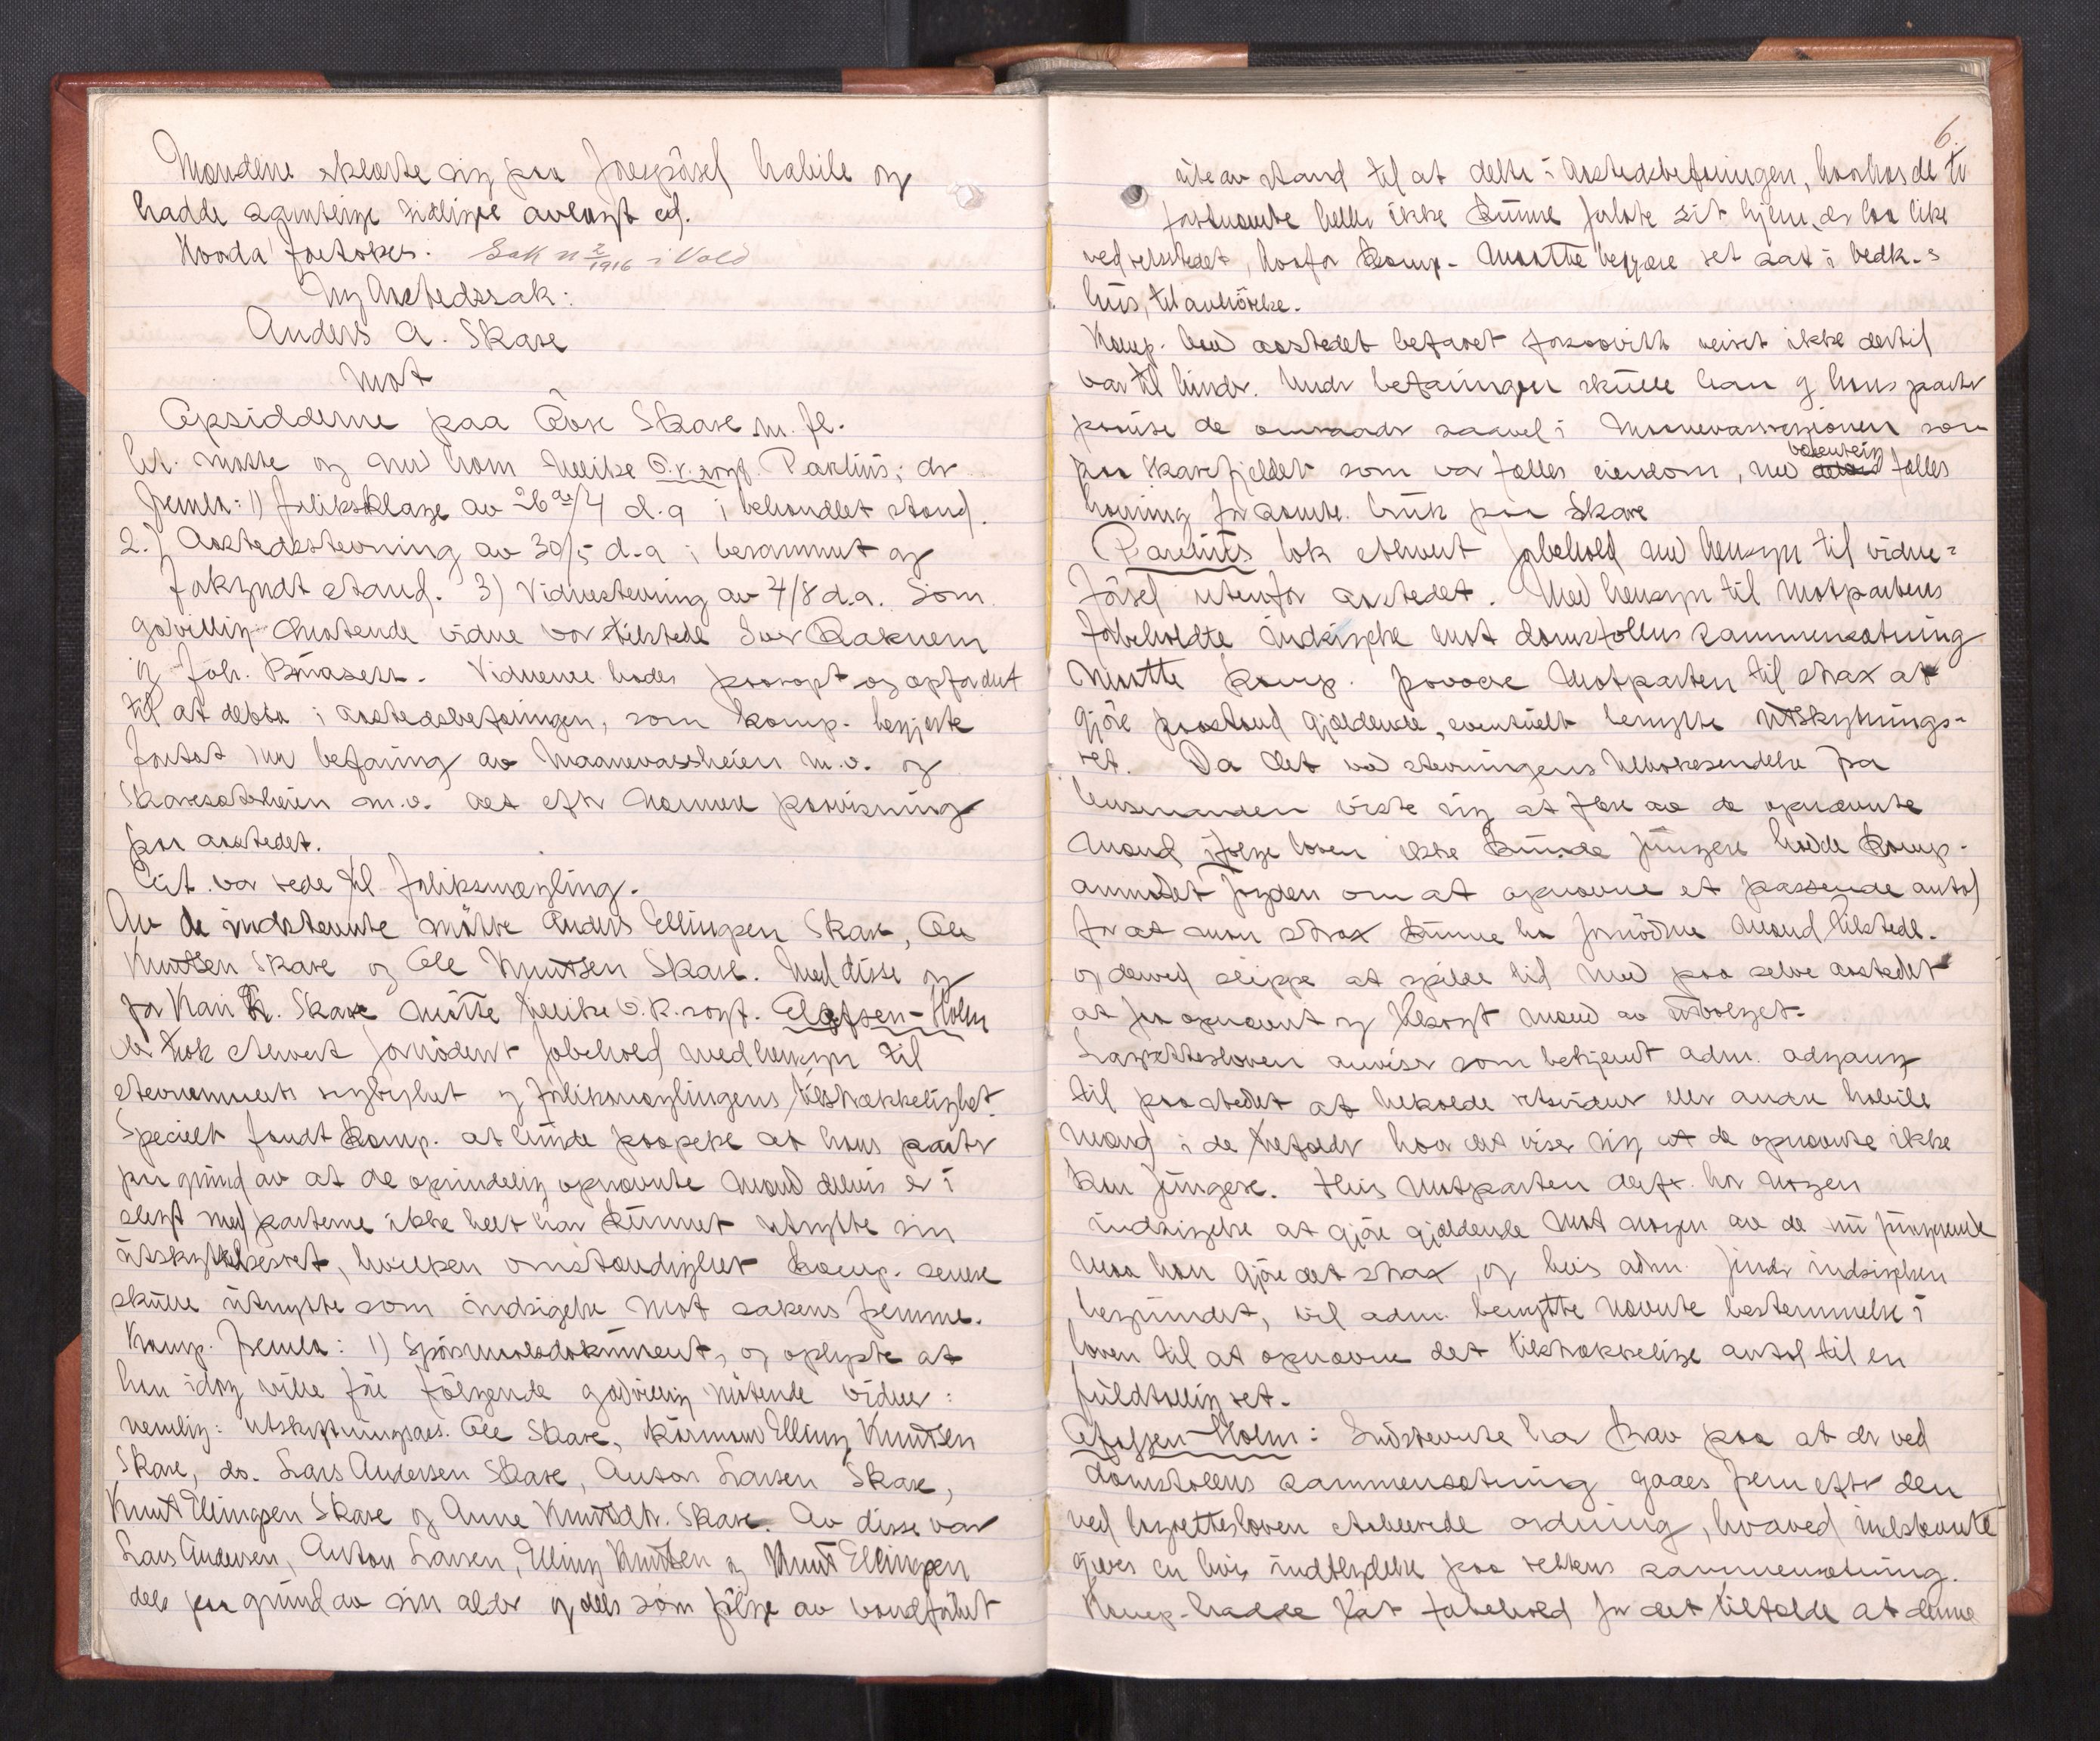 Mændene erklærte sig paa forespørsel habile og
hadde samtlige tidligere avlagt ed.
Hvorda foretokes: Sak nr 2/1916 i Vold
Ny Aastedssak:
Anders A. Skare
mot
Opsidderne paa Övre Skare m. fl.
Cit. møtte og med ham tillike o.r.sagf. Paulius; der
fremla: 1) forliksklage av 26de/4 d.a i behandlet stand.
2.) Aastedsstevning av 30/5 d.a i berammet og
forkyndt stand. 3) Vidnestevning av 4/8 d.a. Som
godvillig møtende vidne var tilstede Iver Raknem
og Joh. Brüaseth. Vidnerne blev paaropt og opfordret
til at delta i aastedsbefaringen, som komp. begjerte
foretat ved befaring av Maanevassheien m.v. og
Skaresæterheien m.v. alt efter nærmere paavisning
paa aastedet.
Cit. var rede til forliksmægling.
Av de indstevnte møtte Anders Ellingsen Skare, Ole
Knutsen Skare og Ole Knutsen Skare. Med disse og
for Kari K. Skare møtte tillike o.r.sagf. Elafsen-Holm
der tok ethvert fornødent forbehold med hensyn til
stevnemaalets lovlighet og forliksmæglingens tilstrækkelighet.
Specielt fandt komp. at burde paapeke at hans parter
paa grund av at de oprindelig opnævnte mænd delvis er i
slegt med parterne ikke helt har kunnet utnytte sin
utskytelsesret, hvilken omstændighet komp. senere
skulle utnytte som indsigelse mot sakens fremme.
Komp. fremla: 1) Spørsmaalsdokument, og oplyste at
han idag ville føre følgende godvillig møtende vidner:
nemlig: utskiftningsass. Ole Skare, kårmand Elling Knutsen
Skare, do. Lars Andersen Skare, Anton Larsen Skare,
Knut Ellingsen Skare og Anne Knutsdtr. Skare. Av disse var
Lars Andersen, Anton Larsen, Elling Knutsen og Knut Ellingsen
dels paa grund av sin alder og dels som følge av vandførhet
6.
ute av stand til at delta i aastedsbefaringen, hvorhos de to
førstnævnte heller ikke kunne forlate sit hjem, der laa like
ved retsstedet, hvorfor komp. maatte begjære ret sat i vedk.s
hus, til avhørelse.
Komp. bad aastedet befaret forsaavidt veiret ikke dertil
var til hinder. Under befaringen skulle han og hans parter
paavise de omraader saavel i Maanevassregionen som
paa Skarefjeldet som var fælles eiendom, med vedvarende fælles
havning for samtl. bruk paa Skare
Paulius tok ethvert forbehold med hensyn til vidne-
førsel utenfor aastedet. Med hensyn til motpartens
forbeholdte indsigelse mot domstolens sammensætning
maatte komp. provocere motparten til strax at
gjøre paastand gjældende, eventuelt benytte utskytnings-
ret. Da det ved stevningens tilbakesendelse fra
lensmanden viste sig at flere av de opnævnte
mænd ifølge loven ikke kunde fungere hadde komp.
anmodet fogden om at opnævne et passende antal
for at man strax kunne ha fornødne mænd tilstede
og derved slippe at spilde tid med paa selve aastedet
at faa opnævnt og tilsagt mænd av utvalget.
Lagrettesloven anviser som bekjendt adm. adgang
til paa stedet at tilkalde retsvidner eller andre habile
mænd i de tilfælder hvor det viser sig at de opnævnte ikke
kan fungere. Hvis motparten derfor har nogen
indsigelse at gjøre gjældende mot nogen av de nu fungerende
maa han gjøre det strax, og hvis adm. finder indsigelsen
begrundet, vil adm. benytte nævnte bestemmelse i
loven til at opnævne det tilstrækkelige antal til en
fuldtallig ret.
Elafsen-Holm: Indstevnte har krav paa at der ved
domstolens sammensætning gaaes frem efter den
ved lagrettesloven etablerede ordning, hvorved indstevnte
gives en hvis indflydelse paa rettens sammensætning.
Komp. hadde tat forbehold for det tilfælde at denne